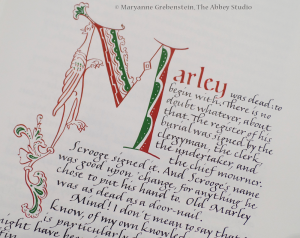 © Maryanne Grebenstein, The Abbey Studio
Marley was dead: to
begin with. There is no
doubt whatever, about
that. The register of his
burial was signed by the
clergyman, the clerk,
the undertaker, and
the chief mourner.
Scrooge signed it. And Scrooge's name
was good upon 'change, for anything he
chose to put his hand to. Old Marley
was as dead as a door-nail.
Mind! I don't mean to say that
know, of my own knowled
is particularly
might have bee